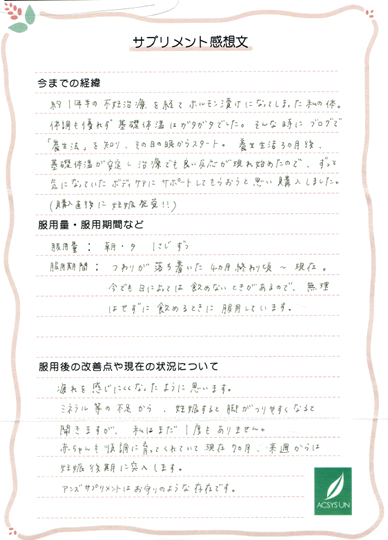 サプリメント感想文
今までの経緯
約1年半の不妊治療を経てホルモン漬けになってしまった私の体。
体調も優れず基礎体温はガタガタでした。そんな時にブログで
「養生法」を知り、その日の晩からスタート。養生生活3ヵ月後、
基礎体温が安定し治療でも良い反応が現れ始めたので、ずっと
気になっていたボディケアにサポートしてもらおうと思い購入しました。
(購入直後に妊娠発覚!!)
服用量・服用期間など
服用量： 朝・夕 にじずつ
服用期間： つわりが落ち着いた4ヵ月終わり頃 〜 現在。
今でも日によっては飲めないときがあるので、無理
はせずに飲めるときに服用しています。
服用後の改善点や現在の状況について
疲れを感じにくくなったように思います。
ミネラル等の不足から、妊娠すると脚がつりやすくなると
聞きますが、私はまだ1度もありません。
赤ちゃんも順調に育ってくれていて現在7ヵ月、来週からは
妊娠後期に突入します。
アンズサプリメントはお守りのような存在です。
ACSYS UN